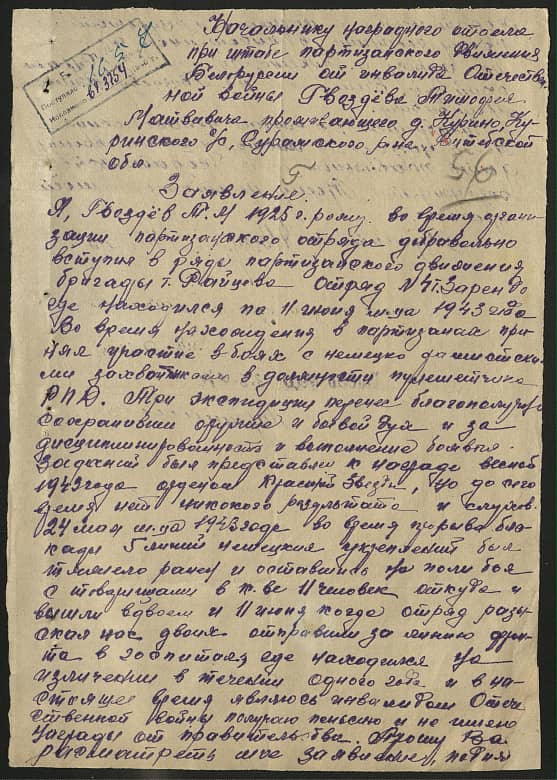 Начальнику наградного отдела
при штабе партизанского движения
Белоруссии от инвалида Отечестве
ной войны Гвоздёва Тимофея
Матвеевича проживающего д. Курино, Ку-
ринского с/с, Суражского р-на, Витебской
обл.
Поступило
95
5
Заявление.
Я, Гвоздёв Т.М 1925 г. рожд. во время органи
зации партизанского отряда добравольно
вступил в ряды партизанского движения
бригады т. Райцева отряд №4 т.
где находился по 11 июня м-ца 1943 года
Во время нахождения в партизанах при
нял участие в боях с немецко фашистски-
ми захватчиками в должности пулеметчика
РПД. Три экспедиции перенес благополучно
сохранивши оружие и боевой дух и за
дисциплинированность и выполнение боевых
заданий был представлен к награде весной
1943 года орденом Красной Звезды, но до сего
время нет никокого результата и слухов.
24 мая м-ца 1943 годе во время прорыва бло
кады 5 линий немецких укреплений был
тяжело ранен и оставшись на поли боя
с товарищами в к-ве 11 человек откуда и
вышли вдвоем и 11 июня когда отряд разы
скал нас двоих отправили за линию фрон
та в госпиталь где находился на
излечении в течении одного года и в на-
стоящее время являюсь инвалидом Отече
ственной войны получаю пенсию и не имею
награды от правительства. Прошу Ва
рассматреть мое заявление,